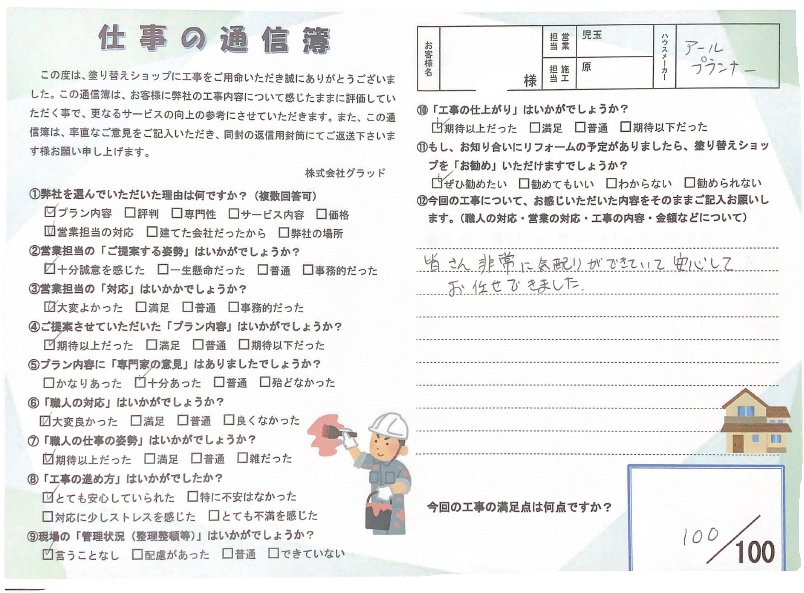 仕事の通信簿
この度は、塗り替えショップに工事をご用命いただき誠にありがとうございま
した。この通信簿は、お客様に弊社の工事内容について感じたままに評価してい
ただく事で、更なるサービスの向上の参考にさせていただきます。また、この通
信簿は、率直なご意見をご記入いただき、同封の返信用封筒にてご返送下さいま
す様お願い申し上げます。
株式会社グラッド
①弊社を選んでいただいた理由は何ですか?（複数回答可）
☑プラン内容 □評判 □専門性 □サービス内容 □価格
☑営業担当の対応 □建てた会社だったから □弊社の場所
②営業担当の「ご提案する姿勢」はいかがでしょうか?
☑十分誠意を感じた □一生懸命だった □普通 □事務的だった
③営業担当の「対応」はいかかでしょうか?
☑大変よかった □満足 □普通 □事務的だった
④ご提案させていただいた「プラン内容」はいかがでしょうか?
☑期待以上だった □満足 □普通 □期待以下だった
⑤プラン内容に「専門家の意見」はありましたでしょうか?
□かなりあった ☑十分あった □普通 □殆どなかった
⑥「職人の対応」はいかがでしょうか?
☑大変良かった □満足 □普通 □良くなかった
⑦「職人の仕事の姿勢」はいかがでしょうか?
☑期待以上だった □満足 □普通 □雑だった
⑧「工事の進め方」はいかがでしたか?
☑とても安心していられた □特に不安はなかった
□対応に少しストレスを感じた □とても不満を感じた
⑨現場の「管理状況（整理整頓等）」はいかがでしょうか?
☑言うことなし □配慮があった □普通 □できていない
お客様名
様
営業担当
児玉
施工担当
原
ハウスメーカー
アール
プランナー
⑩「工事の仕上がり」はいかがでしょうか?
☑期待以上だった □満足 □普通 □期待以下だった
⑪もし、お知り合いにリフォームの予定がありましたら、塗り替えショッ
プを「お勧め」いただけますでしょうか?
☑ぜひ勧めたい □勧めてもいい □わからない □勧められない
⑫今回の工事について、お感じいただいた内容をそのままご記入お願いし
ます。（職人の対応・営業の対応・工事の内容・金額などについて）
皆さん非常に気配りができていて安心して
お任せできました.
今回の工事の満足点は何点ですか?
100/100